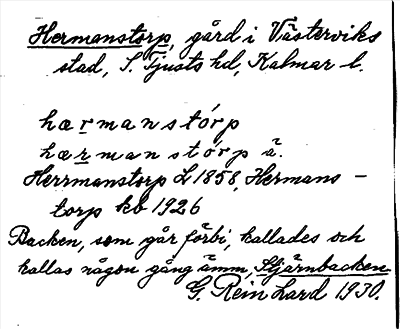 Hermanstorp, gård i Västerviks
stad, S. Tjusts hd, Kalmar l.
hærmanstórp
hærmanstórp ä.
Herrmanstorp L 1858, Hermans-
torp kb 1926
Backen, som går förbi, kallades och
kallas någon gång ännu, Stjärnbacken.
G. Reinhard 1930.